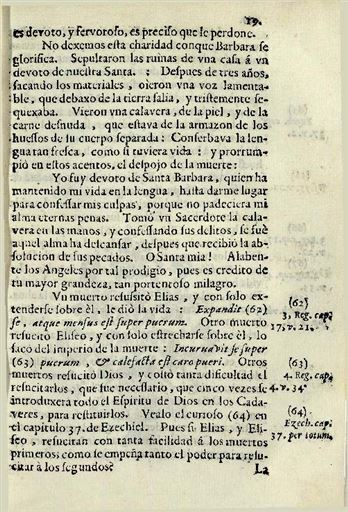 19.
es devoto, y fervoroso, es preciso que le perdone.
No dexemos esta charidad conque Barbara se
glorifica. Sepultaron las ruinas de vna casa á vn
devoto de nuestra Santa. : Despues de tres años,
sacando los materiales, oieron vna voz lamenta-
ble, que debaxo de la tierra salia, y tristemente se-
quexaba. Vieron vna calavera, de la piel, y de la
carne desnuda, que estava de la armazon de los
huessos de su cuerpo separada: Conserbava la len-
gua tan fresca, como si tuviera vida: y prorrum-
pió en estos acentos, el despojo de la muerte:
Yo fuy devoto de Santa Barbara, quien ha
mantenido mi vida en la lengua, hasta darme lugar
para confessar mis culpas, porque no padeciera mi
alma eternas penas. Tomó vn Sacerdote la cala-
vera en las manos, y confessando sus delitos, se fué
aquel alma ha descansar, despues que recibió la ab-
solucion de sus pecados. O Santa mia! Alaben-
te los Angeles por tal prodigio, pues es credito de
tu mayor grandeza, tan portentoso milagro.
Vn muerto resusitó Elias, y con solo ex-
tenderse sobre èl, le dió la vida: Expandit (62)
se, atque mensus est super puerum. Otro muerto
resucitó Eliseo, y con solo estrecharse sobre èl, lo
sacó del imperio de la muerte: Incurvavit se super
(63) puerum, & calefacta est caro pueri. Otros
muertos resucitó Dios, y costó tanta dificultad el
resucitarlos, que fue necessario, que cinco vezes se
introduxera todo el Espiritu de Dios en los Cada-
veres, para restituirlos. Vealo el curioso (64) en
el capitulo 37. de Ezechiel. Pues si Elias, y Eli-
seo, resucitan con tanta facilidad á los muertos
primeros; como se empeña tanto el poder para resu-
citar á los segundos?
La
(62)
3. Reg. cap.
17, v. 21.
(63)
4. Reg. cap.
4. v. 34
(64)
Ezech. cap.
37. per totum.